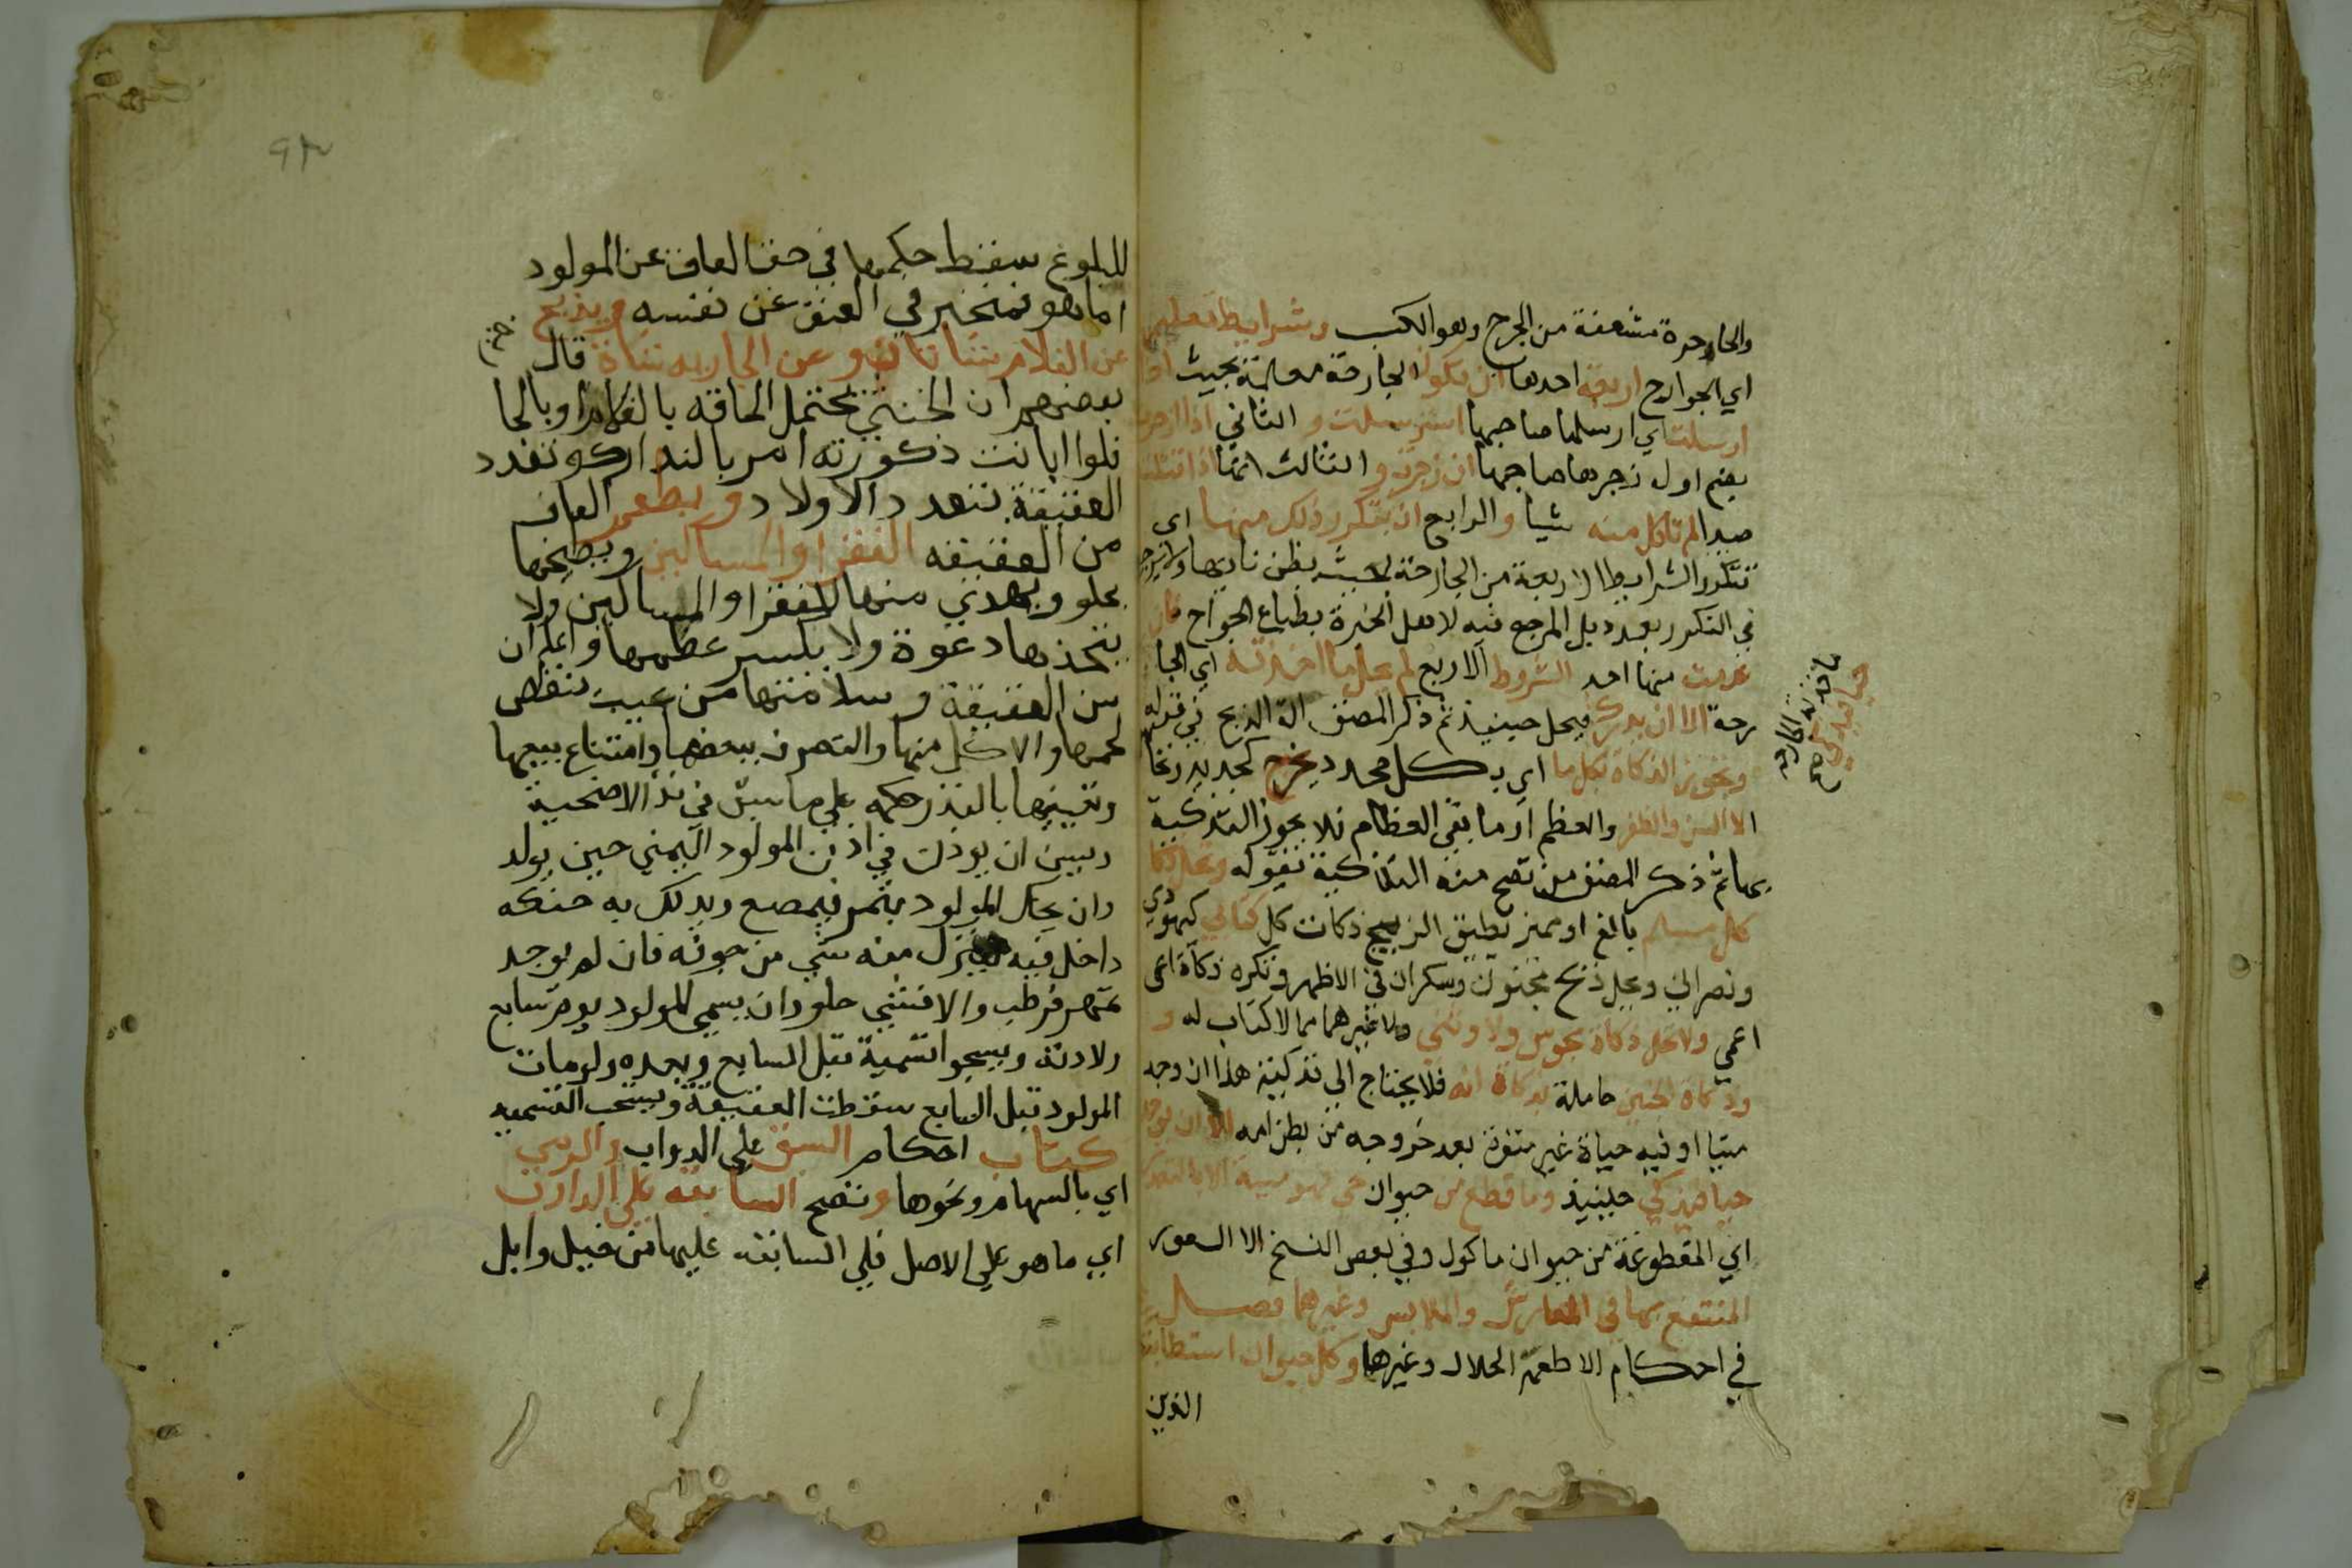 والجارحة مشتقة من الجرح وهو الكسب وشرايط تعليمها
اي الجوارح اربعة احدها ان تكون الجارحة معلمة بحيث اذا
ارسلت اي ارسلها صاحبها استرسلت و الثاني اذا زجرت
بضم اوله زجرها صاحبها انزجرت و الثالث انها اذا قتلت
صيدا لم تاكل منه شيا والرابع ان يتكرر ذلك منها اي
تتكرر الشرايط الاربعة من الجارحة بحيث يظن تاديبها ولا يرجع
في التكرر بعدد بل المرجع فيه لاهل الخبرة بطباع الجوارح فان
عدمت منها احد الشروط الاربع لم يحل ما اخذته اي الجا
رحة الا ان يدرك فيحل حينيذ ثم ذكر المصنف الة الذبح في قوله
وتجوز الذكاة بكل ما اي بكل محدد يجرح كحديد ونحا
الا السن والظفر والعظم او ما بقي العظام فلا يجوز التذكية
بها ثم ذكر المصنف من تصح منه التذكية بقوله وتحل ذكا
كل مسلم بالغ او مميز يطيق الذبح ذكات كل كتابي كيهودي
ونصراني وتحل ذبح مجنون وسكران في الاظهر وتكره ذكاة اعمي
اعمي ولا تحل ذكاة مجوس ولا وثني ولا غيرهما مما لا كتاب له و
وذكاة الجنين حاملة بذكاة امه فلا يحتاج الي تذكيته هذا ان وجد
ميتا او فيه حياة غير مستقرة بعد خروجه من بطن امه الا ان يوجد
حيا فيذكي حينيذ وما قطع من حيوان حي فهو ميتة الا بالشعور
اي المقطوعة من حيوان ماكول وفي بعض النسخ الا الشعور
المنتفع بها في المفارش والملابس وغيرهما فصل
في احكام الاطعمة الحلال وغيرها وكل حيوان استطابته
الذين
ما اخذته الجارحة
حيا فيذكي صح
للبلوغ سقط حكمها في حق العاق عن المولود
اما هو فمخير في العق عن نفسه ويذبح
عن الغلام شاتان و عن الجارية شاة قال
بعضهم ان الخنثي يحتمل الحاقه بالغلام او بالجا
فلوا بانت ذكورته امر بالتدارك وتعدد
العقيقة بتعدد الاولاد ويطعم العاق
من العقيقه الفقرا والمساكين ويطبخها
بحلو ويهدي منها للفقرا والمساكين ولا
يتخذها دعوة ولا يكسر عظمها واعلم ان
سن العقيقة وسلامتها من عيب ينقص
لحمها والاكل منها والتصرف ببعضها وامتناع بيعها
وتعيينها بالنذر حكمه علي ما سبق في ند الاضحية
ويسن ان يوذن في اذن المولود اليمني حين يولد
وان يحنك المولود بتمر فيمضع ويدلك به حنكه
داخل فيه لينزل منه شي من جوفه فان لم يوجد
تمر فرطب والا فشي حلو وان يسمي المولود يوم سابع
ولادته ويجوز تسمية قبل السابع وبعده ولو مات
المولود قبل السابع سقطت العقيقة ويستحب التسميه
كتاب احكام السبق علي الدواب والرمي
اي بالسهام ونحوها وتصح المسابقه علي الدواب
اي ما هو علي الاصل في المسابقه عليها من خيل وابل
٩٣